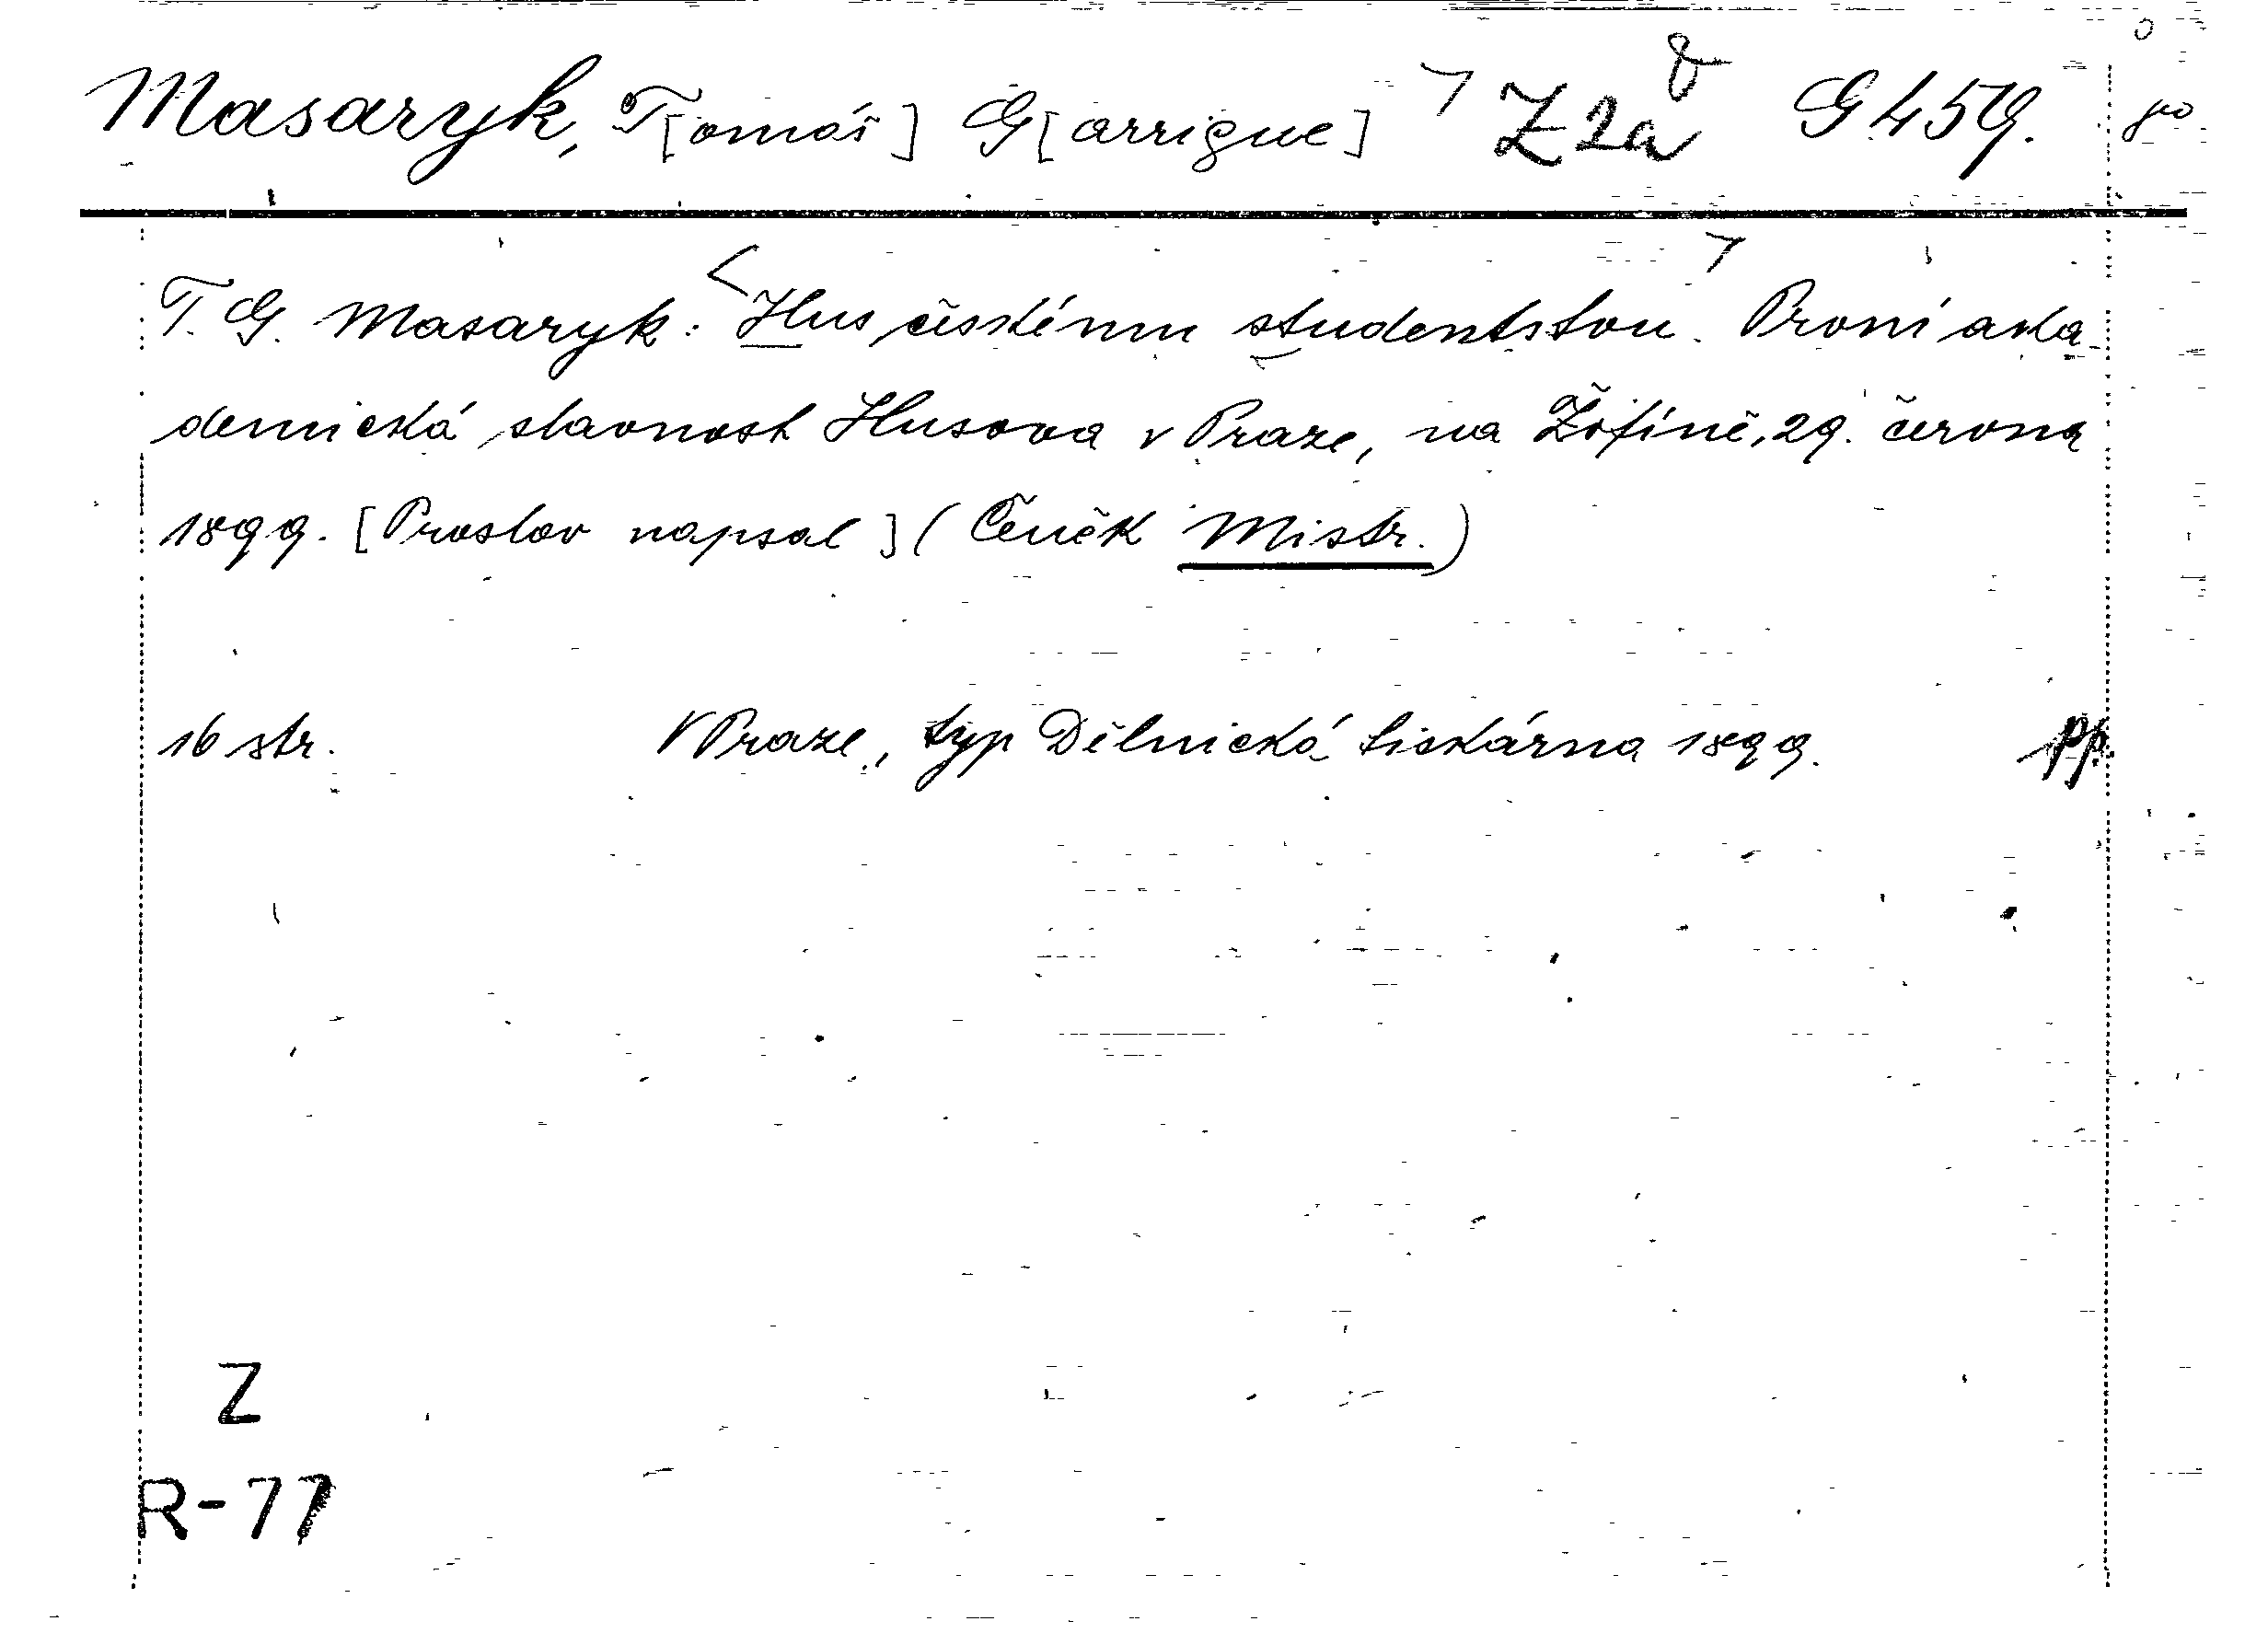 Masaryk, T[omáš] G[arrigue] Z 2a G 459.
T. G. Masaryk: Hus českému studentstvu. První aka-
demická slavnost Husova v Praze, na Žofíně, 29. června
1899. [Proslov napsal] (Čeněk Mistr.)
16 str. V Praze, typ Dělnická tiskárna 1899. pp.
Z
R-77